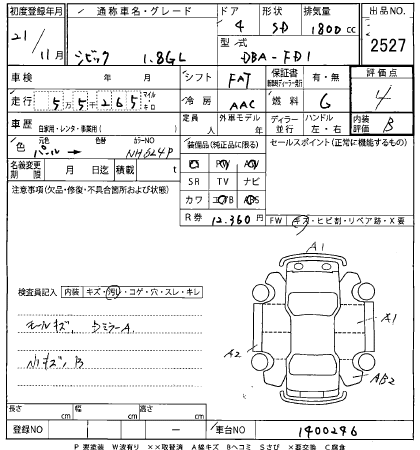 初度登録年月 通称車名・グレード ドア 形状 排気量 出品NO.
21/11月 シビック 1.8GL 4 SD 1800cc 2527
型式 DBA-FD1
車検 年 月 シフト FAT 保証書 有・無 評価点
走行 5万5千265 マイル キロ 冷房 AAC 燃料 G 4
車歴 自家用・レンタ・事業用( ) 定員 人 外車モデル 年 ディーラー 並行 ハンドル 左・右 内装評価 B
色 元色 パール → 色替 カラーNO NH624P 装備品(純正品に限る) セールスポイント(正常に機能するもの)
名義変更期限 月 日迄 積載 t PS PW AW
注意事項(欠品・修復・不具合箇所および状態) SR TV ナビ
カワ エアB ABS
R券 12,360円 FW キズ・ヒビ割・リペア跡・X要
A1
検査員記入 内装 キズ・汚れ・コゲ・穴・スレ・キレ
A1
A2
AB2
長さ cm 幅 cm 高さ cm
登録NO 車台NO 1400246
P 要塗装 W波有り ××取替済 A線キズ Bヘコミ Sさび ×要交換 C腐食